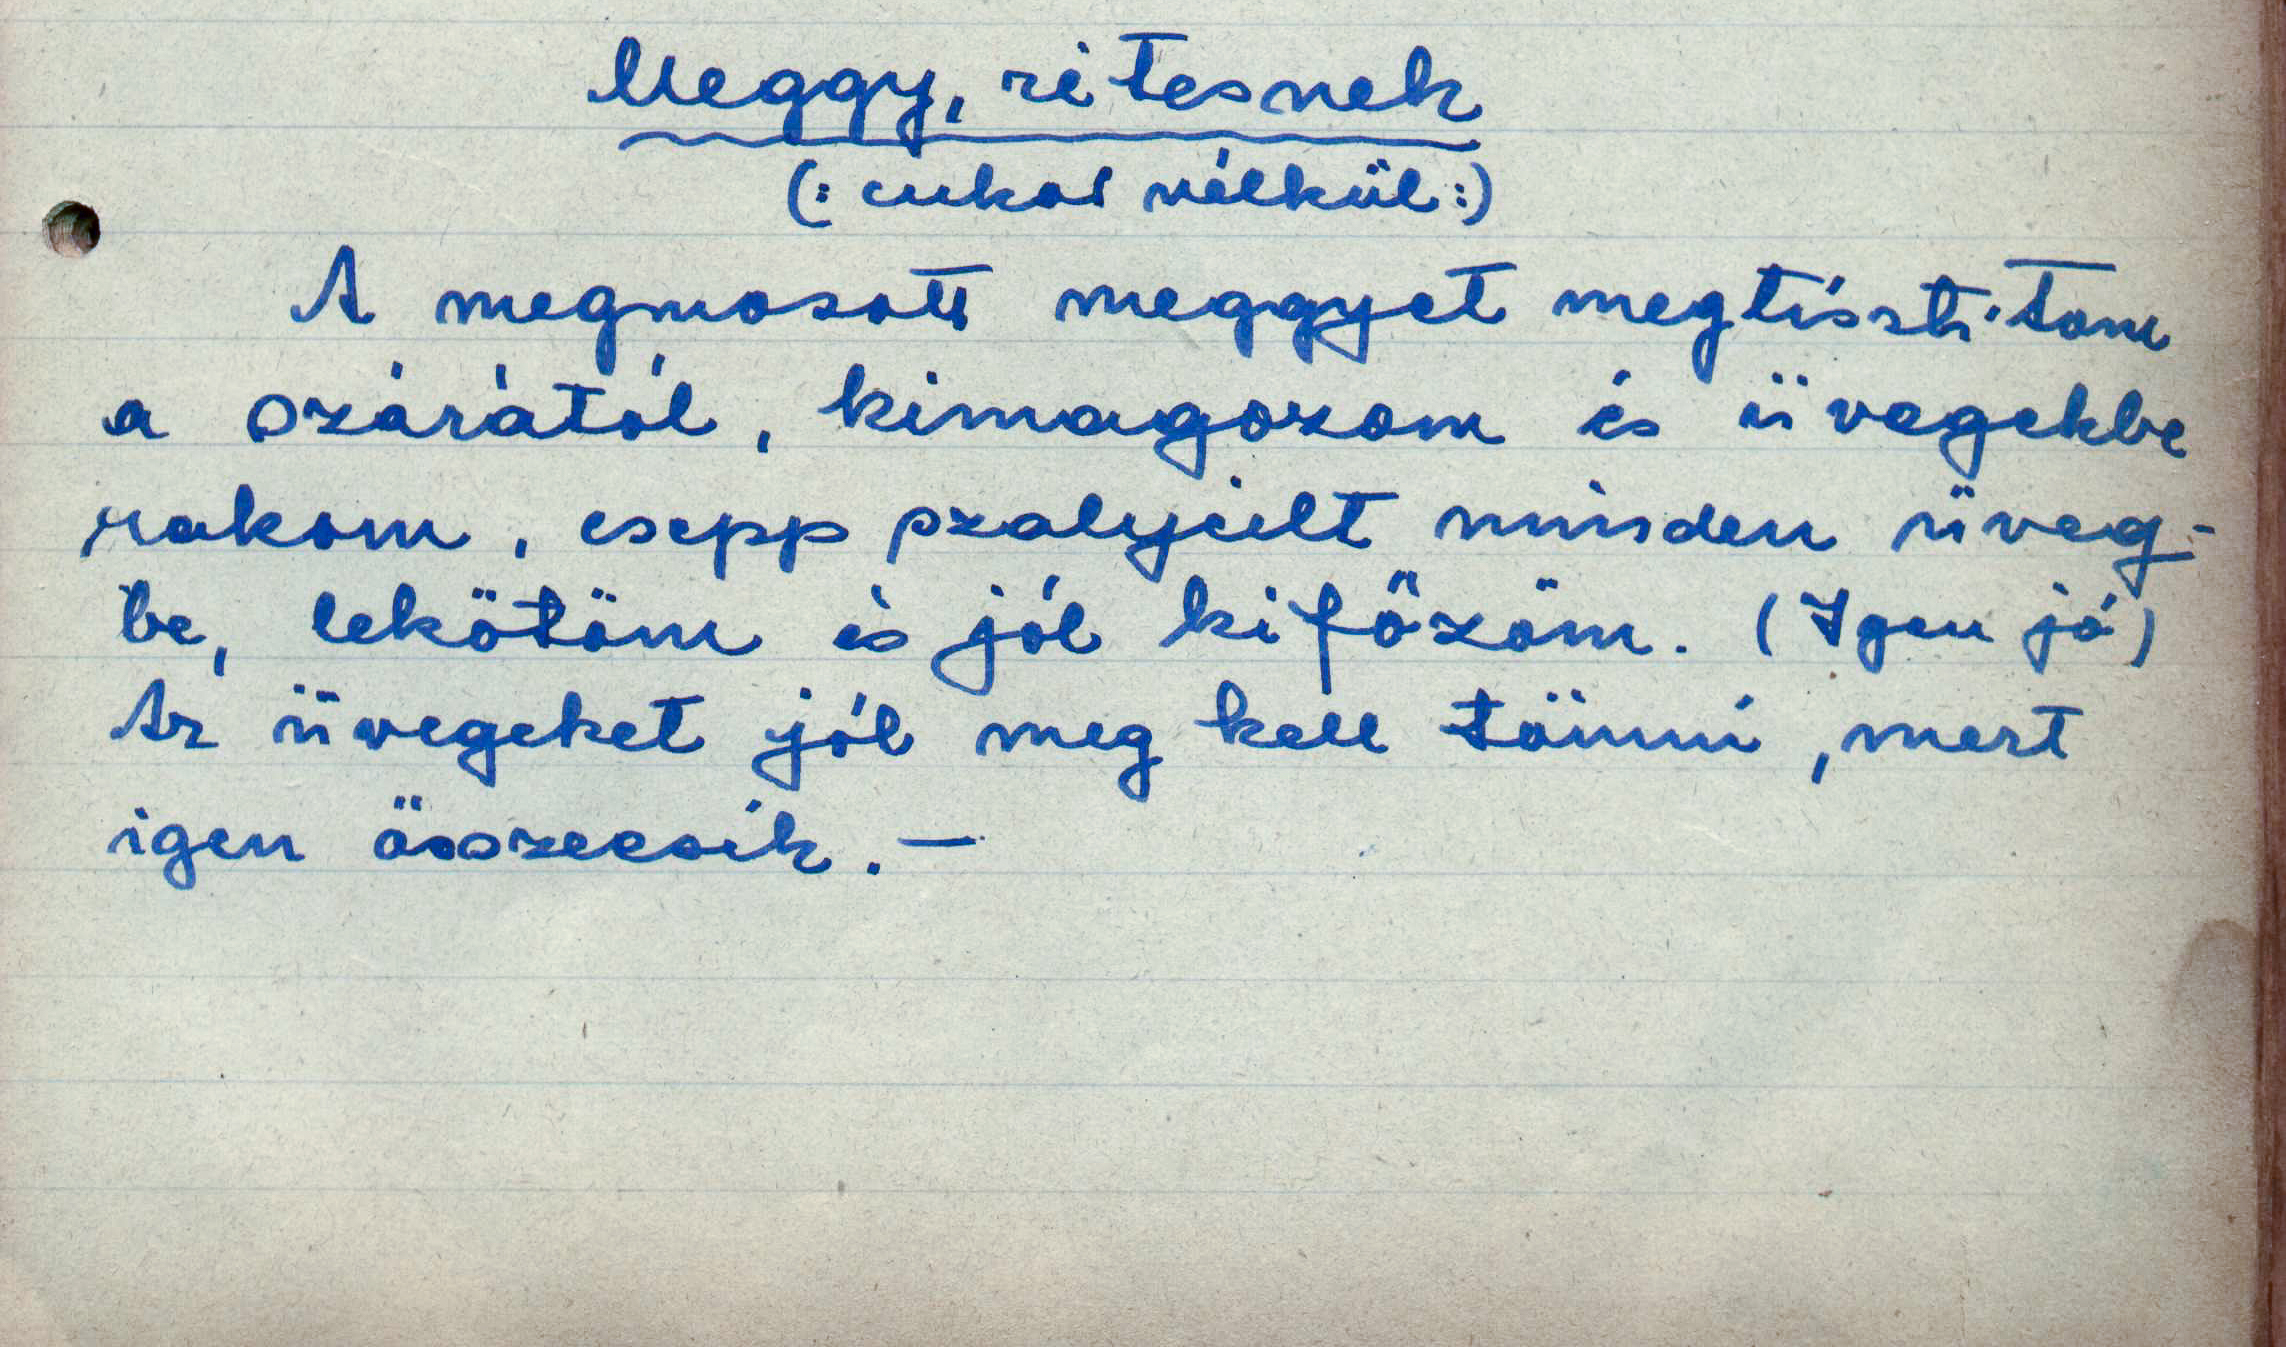 Meggy, rétesnek
(: cukor nélkül :)
A megmosott meggyet megtisztítom
a szárától, kimagozom és üvegekbe
rakom, csepp szalycilt minden üveg-
be, lekötöm és jól kifőzöm. (Igen jó)
Az üvegeket jól meg kell tömni, mert
igen összeesik. —